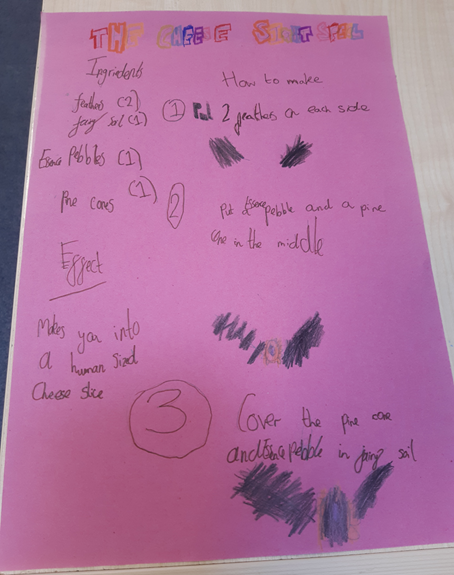 THE CHEESE SHEET SPELL
Ingridents
feathers (2)
soil (1)
Essence Pebbles (1)
Pine cones (1)
Effect
Makes you into
a human sized
Cheese slice
How to make
1 Put 2 feathers on each side
2 Put Essence pebble and a pine
cone in the middle
3 Cover the pine cone
and Essence pebble in soil